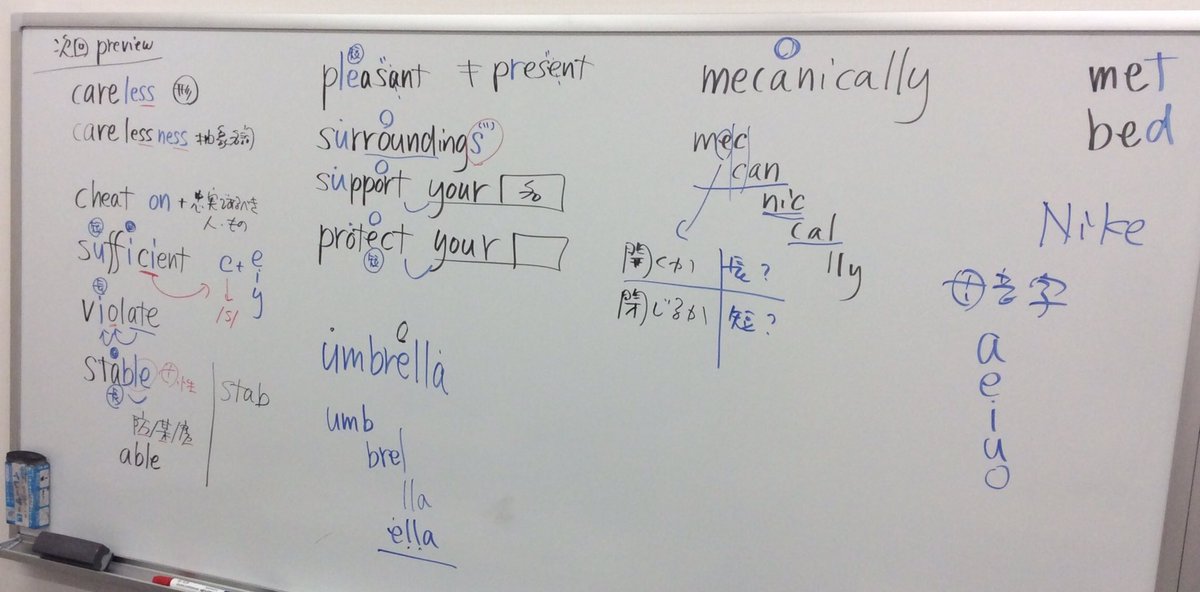 次回 preview
careless 形
carelessness 抽象名詞
cheat on + 忠実であるべき
人・もの
短
sufficient c + e
i
y
/s/
長
violate
stable + 性
長
stab
防/某/度
able
短
pleasant ≠ present
surroundings
support your 名
protect your
短
umbrella
umb
brel
lla
ella
mecanically
mec
can
nic
cal
lly
開くか 長?
閉じるか 短?
met
bed
Nike
母音字
a
e
i
u
o